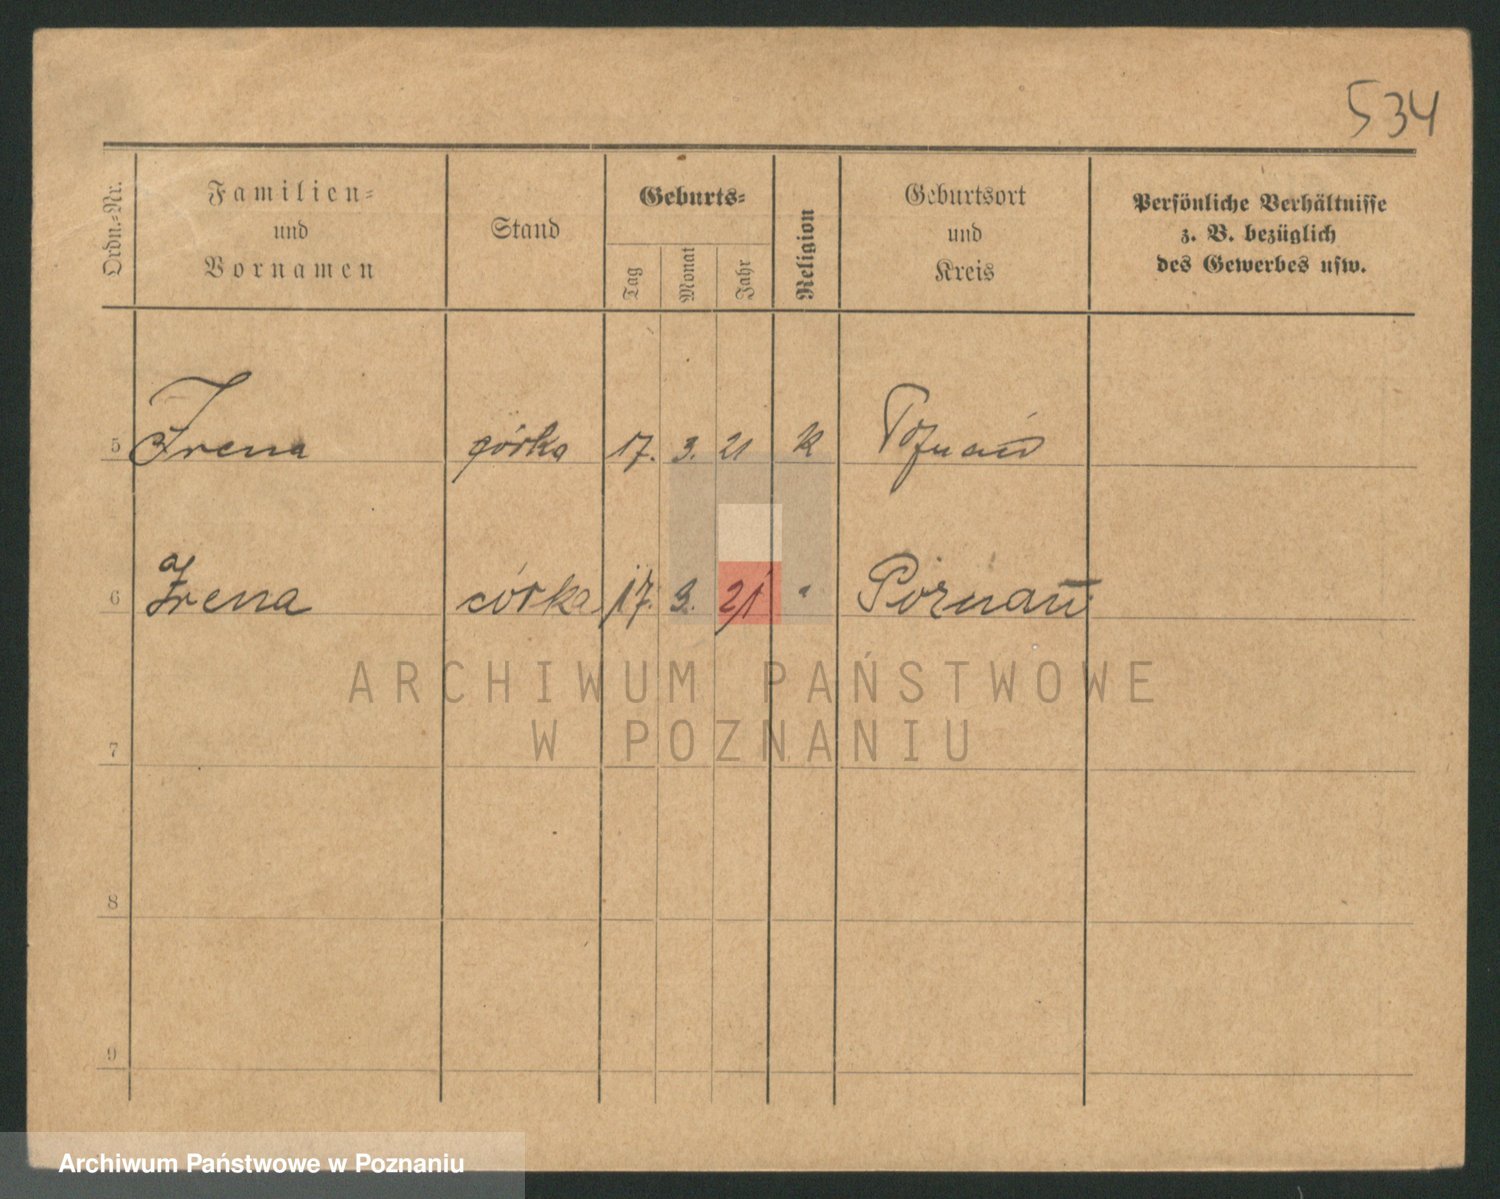 534
Ordn.-Nr.
Familien-
und
Vornamen
Stand
Geburts-
Tag
Monat
Jahr
Religion
Geburtsort
und
Kreis
Persönliche Verhältnisse
z. B. bezüglich
des Gewerbes usw.
5 Irena córka 17. 3. 21 k Poznań
6 Irena córka 17. 3. 21 " Poznań
ARCHIWUM PAŃSTWOWE
W POZNANIU
7
8
9
Archiwum Państwowe w Poznaniu